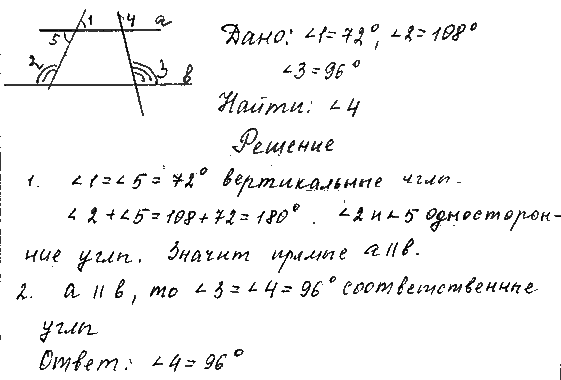 1 4 a
5
2 3 в
Дано: ∠1=72°, ∠2=108°
∠3=96°
Найти: ∠4
Решение
1. ∠1=∠5=72° вертикальные углы.
∠2+∠5=108+72=180°. ∠2 и ∠5 односторон-
ние углы. Значит прямые a∥в.
2. a ∥ в, то ∠3=∠4=96° соответственные
углы
Ответ: ∠4=96°